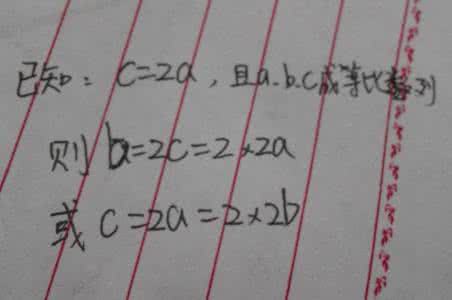 已知：c=2a，且a.b.c成等比数列
则 b=2c=2×2a
或 c=2a=2×2b